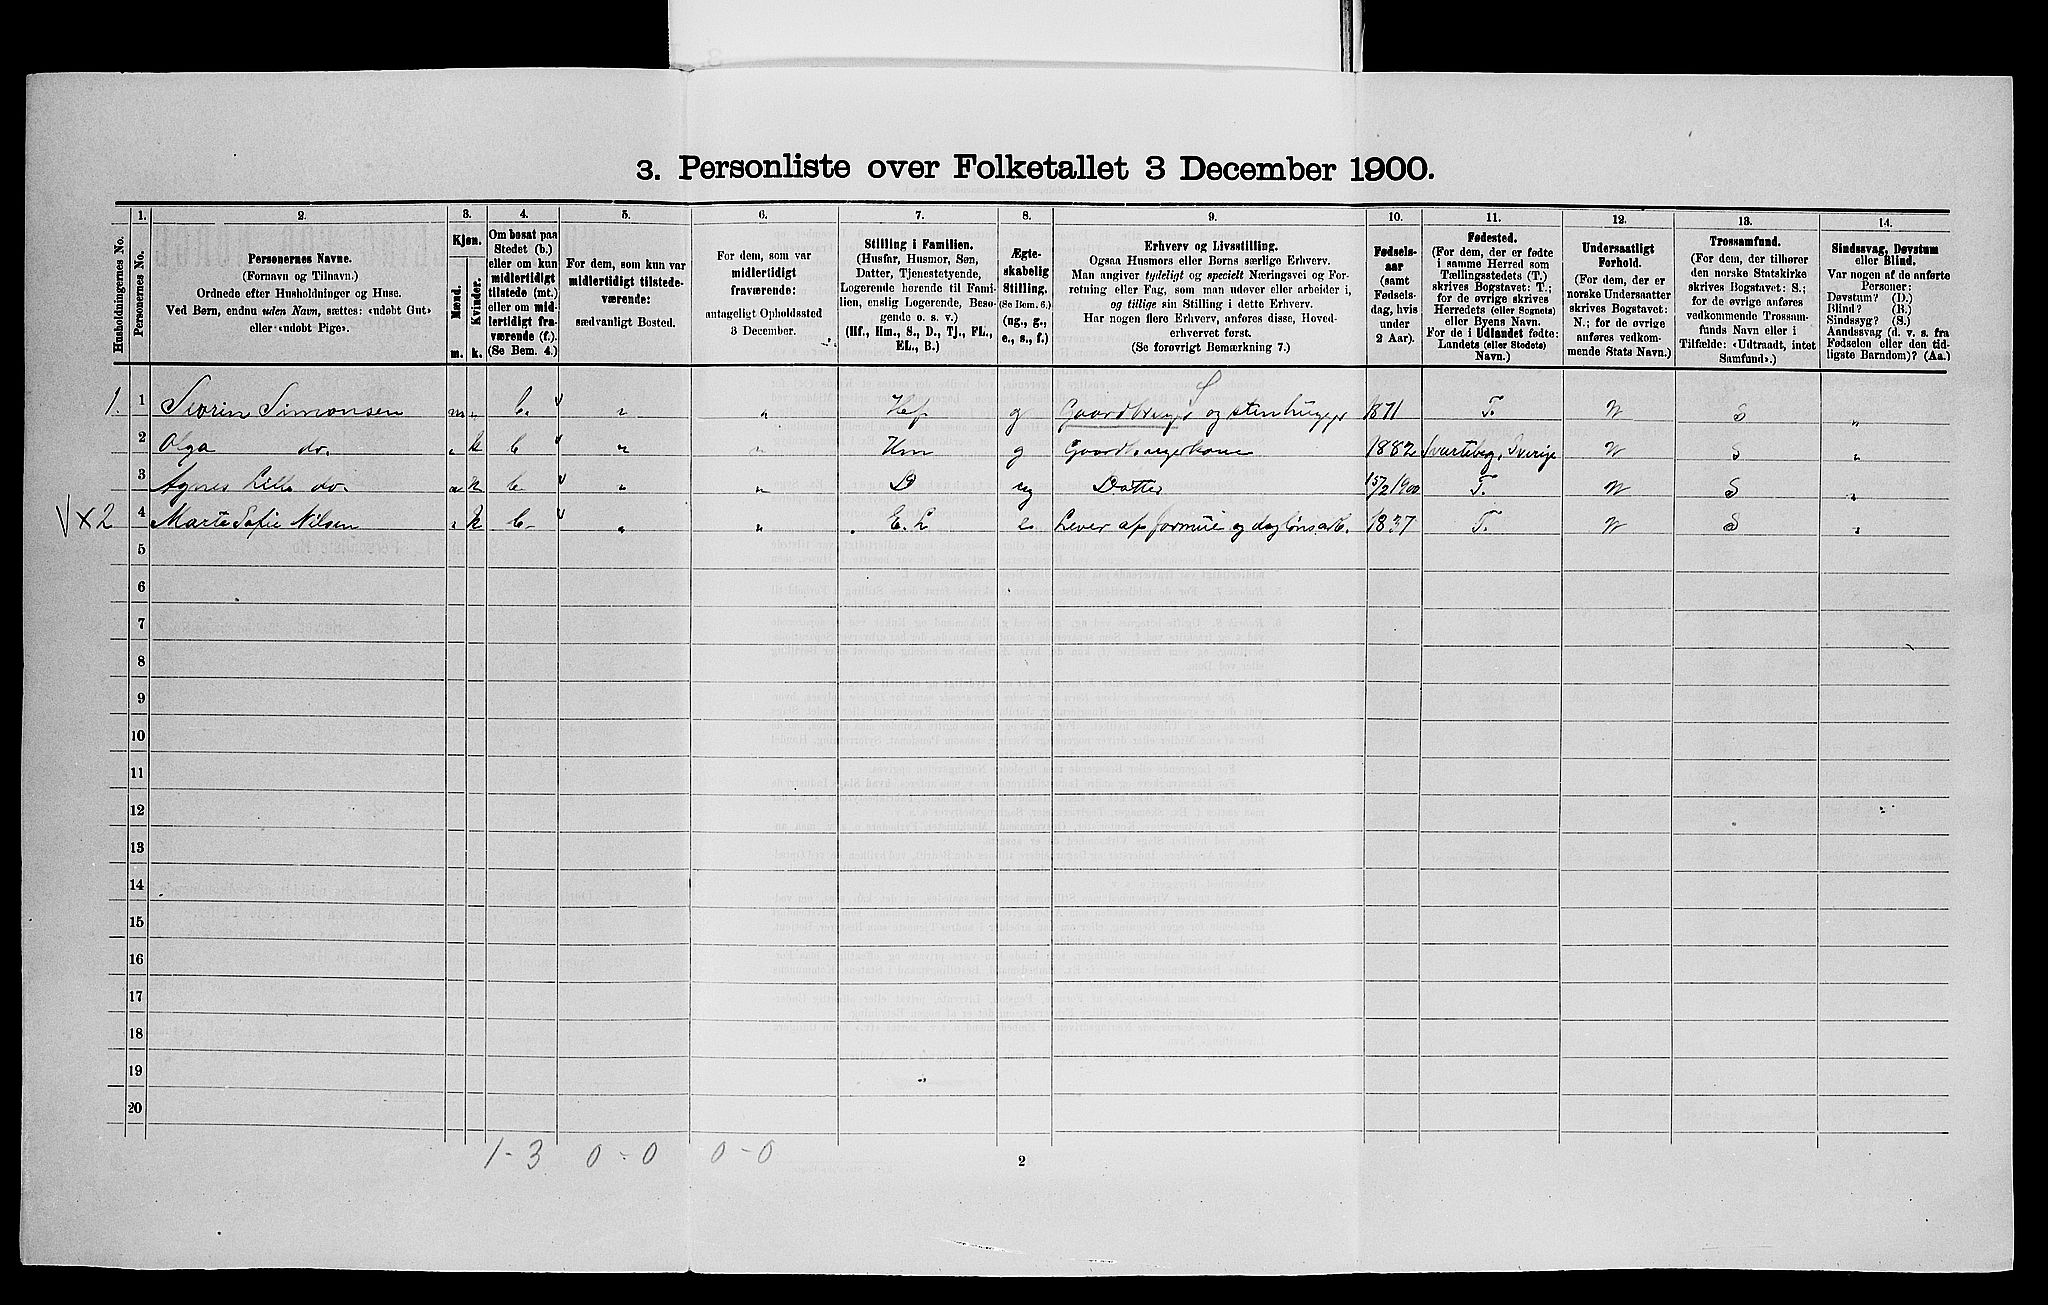 3. Personliste over Folketallet 3 December 1900.
Husholdningernes No.
1.
Personernes No.
2.
Personernes Navne.
(Fornavn og Tilnavn.)
Ordnede efter Husholdninger og Huse.
Ved Børn, endnu uden Navn, sættes: «udøbt Gut»
eller «udøbt Pige».
3.
Kjøn.
Mænd.
Kvinder.
m. k.
4.
Om bosat paa
Stedet (b.)
eller om kun
midlertidigt
tilstede (mt.)
eller om mid-
lertidigt fra-
værende (f.).
(Se Bem. 4.)
5.
For dem, som kun var
midlertidigt tilstede-
værende:
sædvanligt Bosted.
6.
For dem, som var
midlertidigt
fraværende:
antageligt Opholdssted
3 December.
7.
Stilling i Familien.
(Husfar, Husmor, Søn,
Datter, Tjenestetyende,
Logerende hørende til Fami-
lien, enslig Logerende, Besø-
gende o. s. v.)
(Hf., Hm., S., D., Tj., FL.,
EL., B.)
8.
Ægte-
skabelig
Stilling.
(Se Bem. 6.)
(ug., g.,
e., s., f.)
9.
Erhverv og Livsstilling.
Ogsaa Husmors eller Børns særlige Erhverv.
Man angiver tydeligt og specielt Næringsvei og For-
retning eller Fag, som man udøver eller arbeider i,
og tillige sin Stilling i dette Erhverv.
Har nogen flere Erhverv, anføres disse, Hoved-
erhvervet først.
(Se forøvrigt Bemærkning 7.)
10.
Fødsels-
aar
(samt
Fødsels-
dag, hvis
under
2 Aar).
11.
Fødested.
(For dem, der er fødte
i samme Herred som
Tællingsstedets (T.)
skrives Bogstavet: T.;
for de øvrige skrives
Herredets (eller Sognets)
eller Byens Navn.
For de i Udlandet fødte:
Landets (eller Stedets)
Navn.)
12.
Undersaatligt
Forhold.
(For dem, der er
norske Undersaatter
skrives Bogstavet:
N.; for de øvrige
anføres vedkom-
mende Stats Navn.)
13.
Trossamfund.
(For dem, der tilhører
den norske Statskirke
skrives Bogstavet: S.;
for de øvrige anføres
vedkommende Trossam-
funds Navn eller i
Tilfælde: «Udtraadt, intet
Samfund».)
14.
Sindssvag, Døvstum
eller Blind.
Var nogen af de anførte
Personer:
Døvstum? (D.)
Blind? (B.)
Sindssyg? (S.)
Aandssvag (d. v. s. fra
Fødselen eller den tid-
ligste Barndom)? (Aa.)
1. 1 Simonsen m „ b. „ „ Hf g S og stenhugger 1871 T. N S „
2 Olga do. „ k b „ „ Hm g 1882 Sverige N S „
3 Agnes do. „ k b „ „ D ug Datter 15/2 1900 T. N S „
V x 2 4 Marte Sofie Nilsen „ k b „ „ E. L e Lever af formue og 1837 T. N S „
5
6
7
8
9
10
11
12
13
14
15
16
17
18
19
20
1-3 0-0 0-0
2